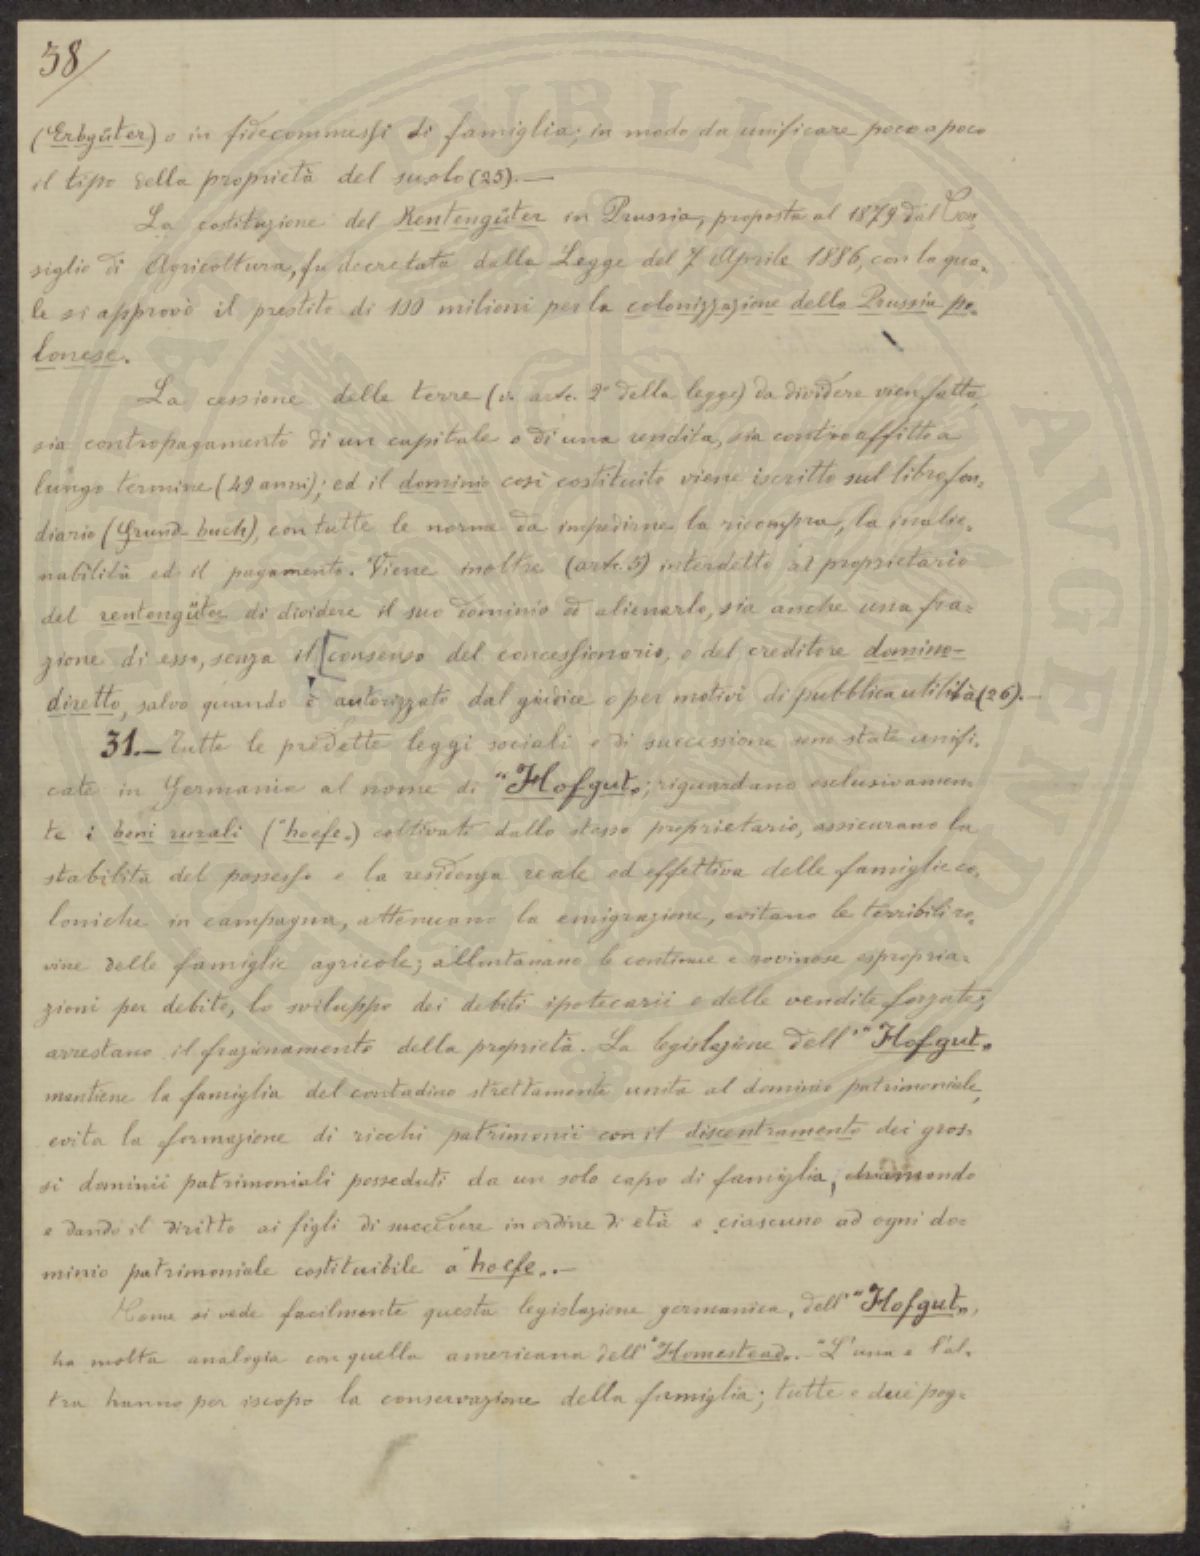 38/
(Erbgüter) o in fidecommessi di famiglia; in modo da unificare poco a poco
il tipo della proprietà del suolo (25). —
La costituzione del Rentengüter in Prussia, proposta al 1879 dal Con
siglio di Agricoltura, fu decretata dalla Legge del 7 Aprile 1886, con la qua-
le si approvò il prestito di 100 milioni per la colonizzazione della Prussia po-
lonese.
La cessione delle terre (v. art. 2º della legge) da dividere vien fatta,
sia contropagamento di un capitale o di una rendita, sia contro affitto a
lungo termine (49 anni); ed il dominio così costituito viene iscritto sul libro fon-
diario (Grund-buch), con tutte le norme da impedirne la ricompra, la inalie-
nabilità ed il pagamento. Viene inoltre (art. 5) interdetto al proprietario
del rentengüter di dividere il suo dominio od alienarlo, sia anche una fra-
zione di esso, senza il [consenso del concessionario, o del creditore domino-
diretto, salvo quando è autorizzato dal giudice o per motivi di pubblica utilità (26). —
31. — Tutte le predette leggi sociali e di successione sono state unifi-
cate in Germania al nome di "Hofgut„; riguardano esclusivamen-
te i beni rurali ("hoefe„) coltivati dallo stesso proprietario, assicurano la
stabilità del possesso e la residenza reale ed effettiva delle famiglie co-
loniche in campagna, attenuano la emigrazione, evitano le terribili ro-
vine delle famiglie agricole; allontanano le continue e rovinose espropria-
zioni per debito, lo sviluppo dei debiti ipotecarii e delle vendite forzate;
arrestano il frazionamento della proprietà. La legislazione dell' "Hofgut„
mantiene la famiglia del contadino strettamente unita al dominio patrimoniale,
evita la formazione di ricchi patrimonii con il discentramento dei gros-
si dominii patrimoniali posseduti da un solo capo di famiglia,
e dando il diritto ai figli di succedere in ordine di età e ciascuno ad ogni do-
minio patrimoniale costituibile a "hoefe„. —
Come si vede facilmente questa legislazione germanica, dell' "Hofgut„,
ha molta analogia con quella americana dell' "Homestead„. — L'una e l'al-
tra hanno per iscopo la conservazione della famiglia; tutte e due pog-